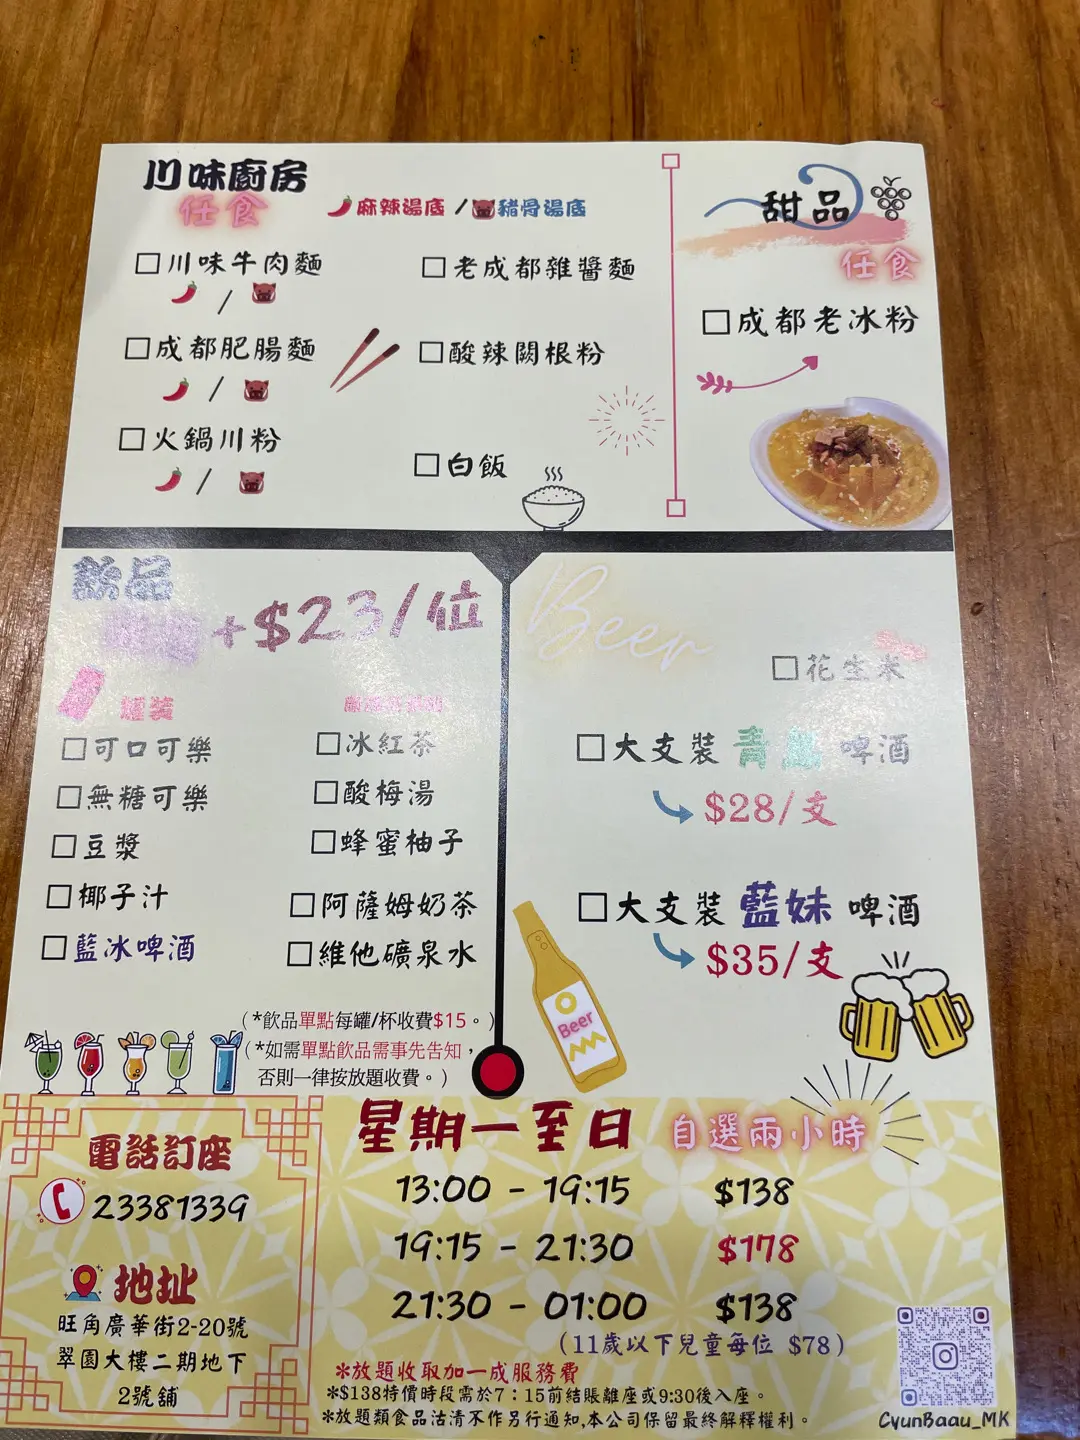 川味廚房
任食
麻辣湯底 / 豬骨湯底
□川味牛肉麵
/
□老成都雜醬麵
□成都肥腸麵
/
□酸辣闕根粉
□火鍋川粉
/
□白飯
甜品
任食
□成都老冰粉
飲品
+$23/位
罐裝
□可口可樂
□無糖可樂
□豆漿
□椰子汁
□藍冰啤酒
□冰紅茶
□酸梅湯
□蜂蜜柚子
□阿薩姆奶茶
□維他礦泉水
(*飲品單點每罐/杯收費$15。)
(*如需單點飲品需事先告知，
否則一律按放題收費。)
Beer
□花生米
□大支裝青島啤酒
$28/支
□大支裝藍妹啤酒
$35/支
Beer
電話訂座
23381339
地址
旺角廣華街2-20號
翠園大樓二期地下
2號舖
星期一至日 自選兩小時
13:00 - 19:15 $138
19:15 - 21:30 $178
21:30 - 01:00 $138
(11歲以下兒童每位 $78)
*放題收取加一成服務費
*$138特價時段需於7：15前結賬離座或9:30後入座。
*放題類食品沽清不作另行通知,本公司保留最終解釋權利。
CyunBaau_MK